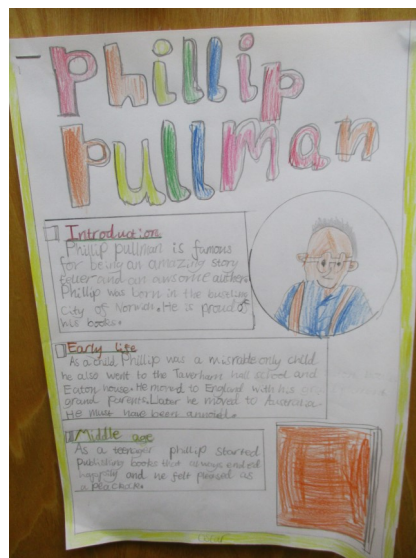 Phillip
Pullman
Introduction
Phillip pullman is famous
for being an amazing story
teller and an awsome author.
Phillip was born in the bustling
city of Norwich. He is proud of
his books.
Early life
As a child, Phillip was a misrable only child
he also went to the Taverham hall school and
Eaton house. He moved to England with his
grand parents. Later he moved to Australia
He must have been annoied.
Middle age
As a teenager phillip started
publishing books that always ended
happily and he felt proud as
a peacock.